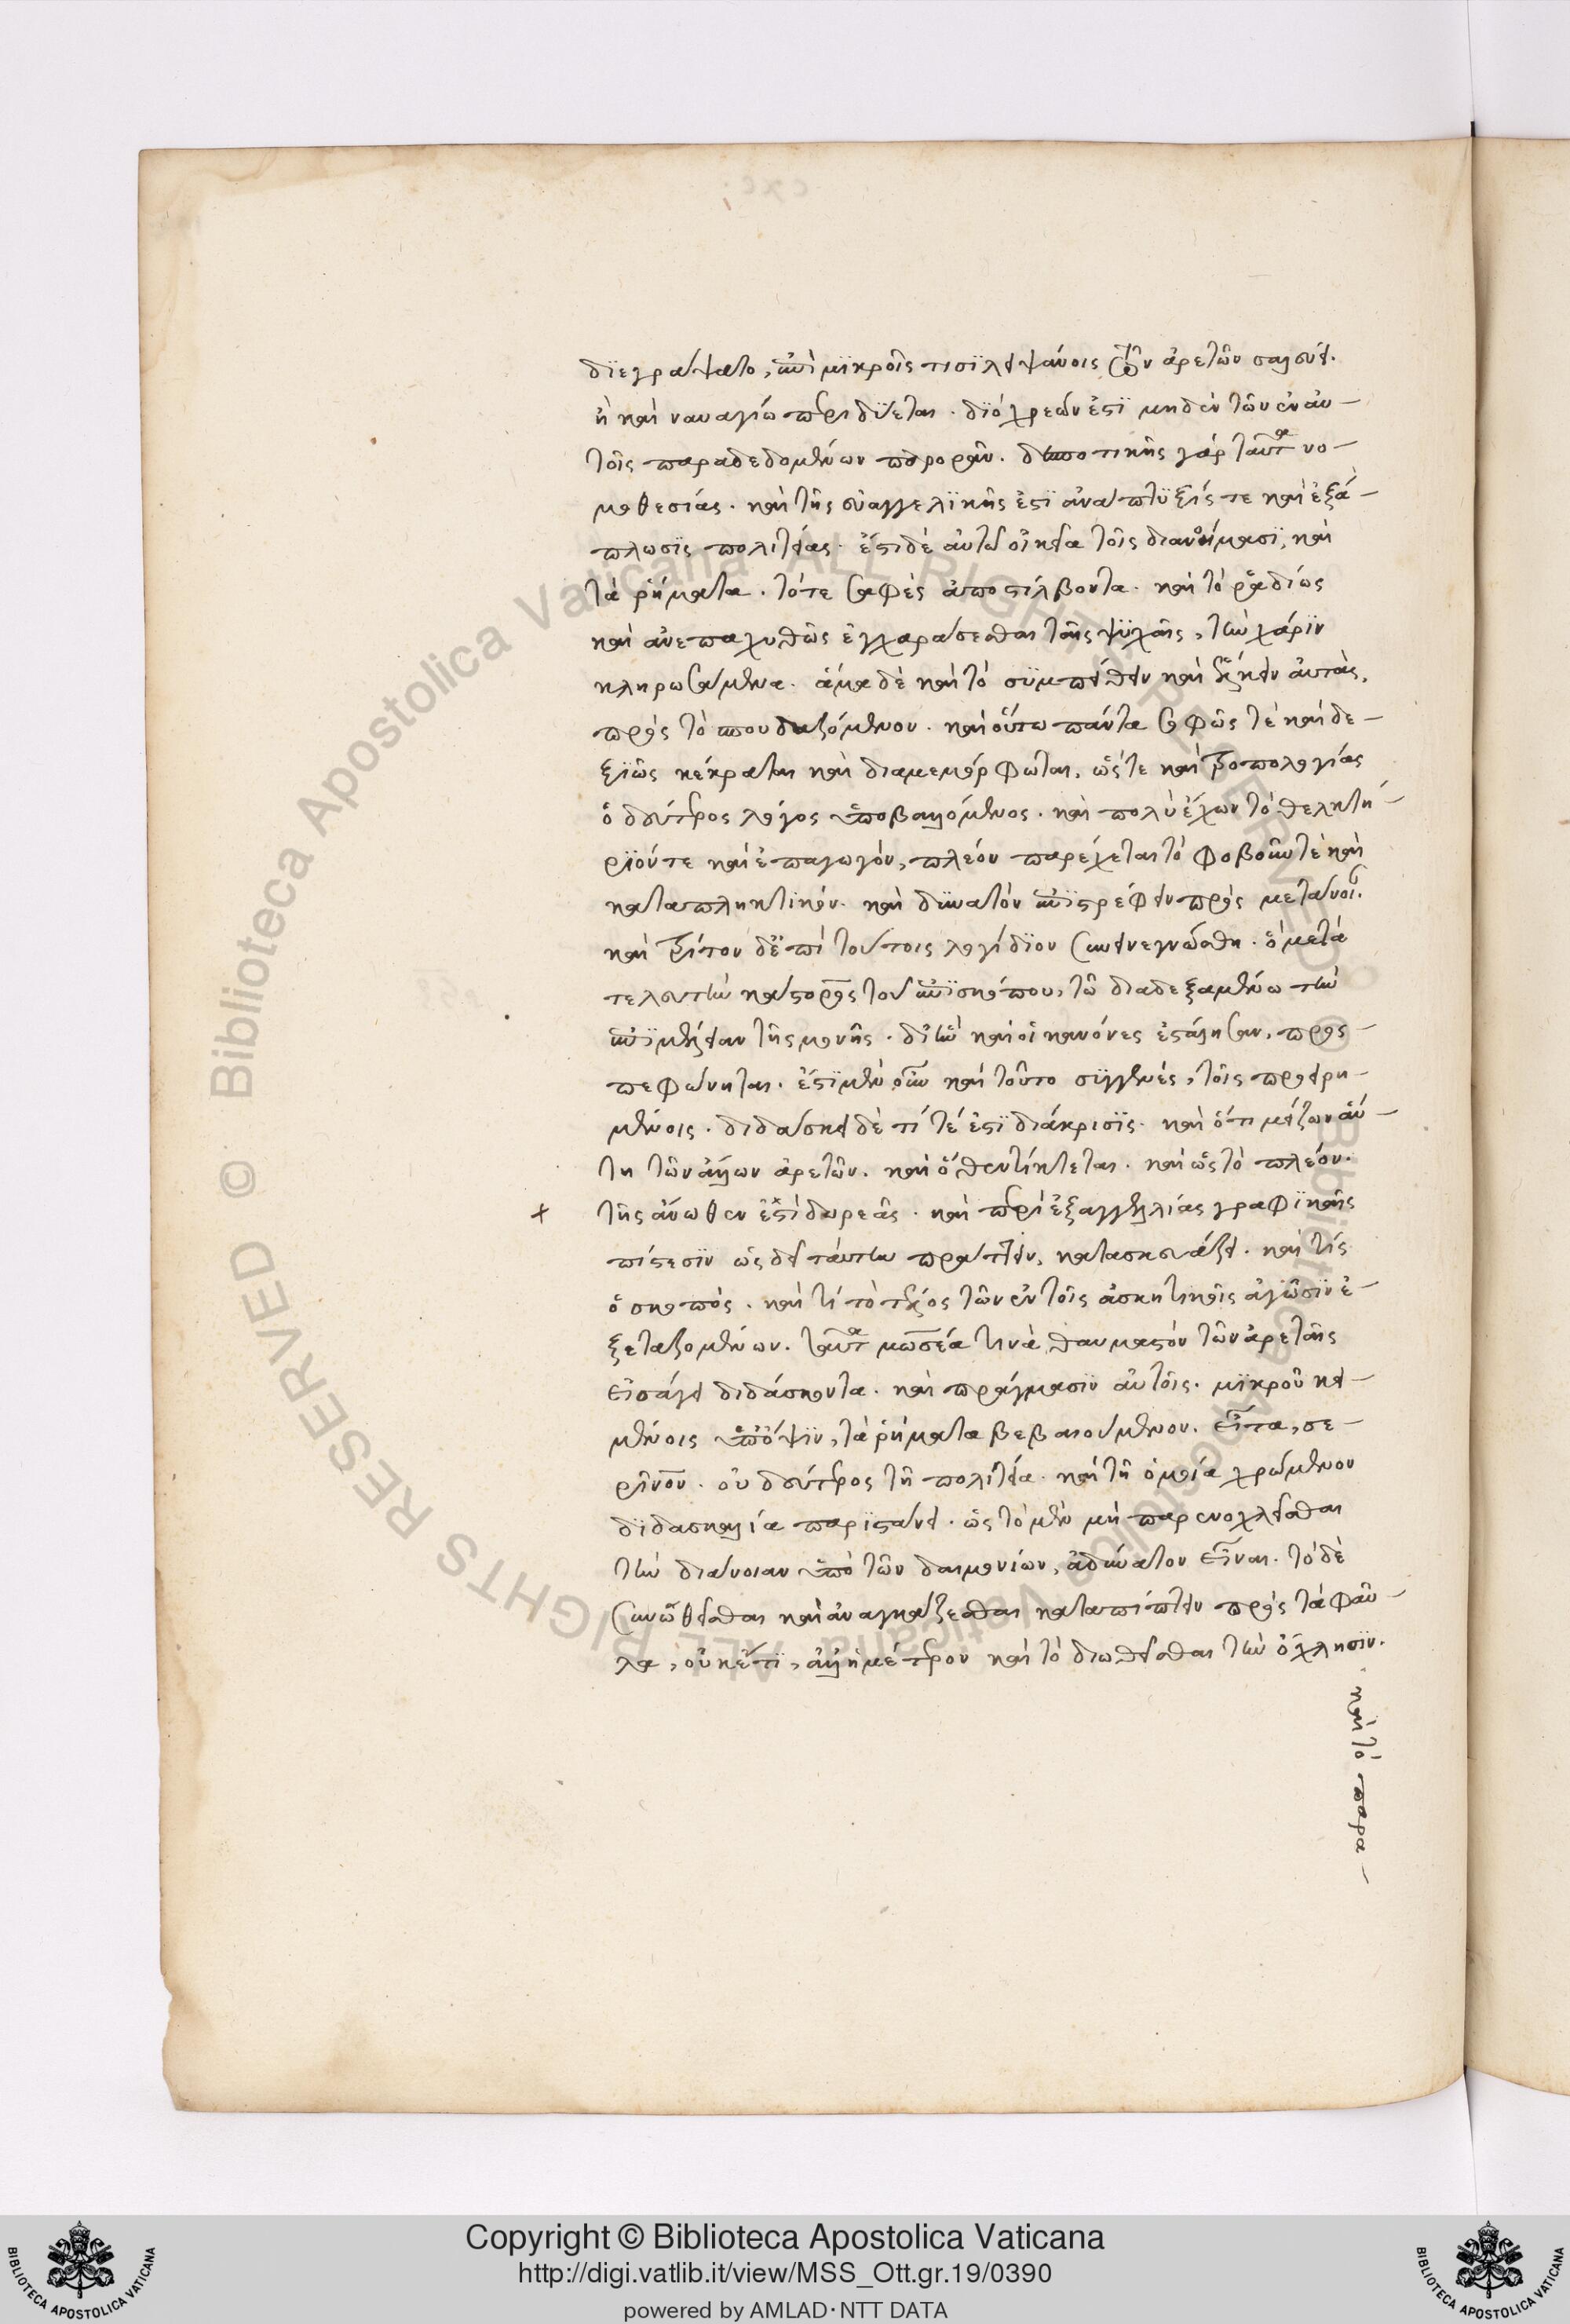 διεγράψατο, ἐπὶ μικροῖς τισὶ λειψάνοις τῶν ἀρετῶν σαλεύει.
ἢ καὶ ναυαγίω περιδύεται. διὸ χρεών ἐστι μηδὲν τῶν ἐν αὐ-
τοῖς παραδεδομένων παρορᾶν. δεσποτικῆς γὰρ ταῦτα νο-
μοθεσίας. καὶ τῆς εὐαγγελικῆς ἐστι ἀνάπτυξίς τε καὶ ἐξά-
πλωσις πολιτείας. ἔστι δὲ αὐτῶ οἰκεῖα τοῖς διανοήμασι, καὶ
τὰ ῥήματα. τό τε σαφὲς ἀποστίλβοντα. καὶ τὸ ῥαδίως
καὶ ἀνεπαχθῶς ἐγχαράσσεσθαι ταῖς ψυχαῖς, τὴν χάριν
κληρωσάμενα. ἅμα δὲ καὶ τὸ συμπείθειν καὶ ἕλκειν αὐτὰς,
πρὸς τὸ σπουδαζόμενον. καὶ οὕτω πάντα σοφῶς τὲ καὶ δε-
ξιῶς κέκραται καὶ διαμεμόρφωται, ὥστε καὶ τροπολογίας
ὁ δεύτερος λόγος ὑποβαλλόμενος. καὶ πολὺ ἔχων τὸ θελκτή-
ριόν τε καὶ ἐπαγωγόν, πλέον παρέχεται τὸ φοβοῦν τὲ καὶ
καταπληκτικόν. καὶ δυνατὸν ἐπιστρέφειν πρὸς μετάνοιαν.
καὶ τρίτον δ' ἐπὶ τούτοις λογίδιον συνανεγνώσθη. ὃ μετὰ
τελευτὴν κάστορος τοῦ ἐπισκόπου, τῶ διαδεξαμένω τὴν
ἐπιμέλειαν τῆς μονῆς. δι' ἣν καὶ οἱ κανόνες ἐστάλησαν, προς-
πεφώνηται. ἔστι μὲν οὖν καὶ τοῦτο συγγενές, τοῖς προειρη-
μένοις. διδάσκει δὲ τί τέ ἐστι διάκρισις. καὶ ὅτι μείζων αὕ-
τη τῶν ἄλλων ἀρετῶν. καὶ ὅθεν τίκτεται. καὶ ὡς τὸ πλέον.
τῆς ἄνωθεν ἐστὶ δωρεᾶς. καὶ περὶ ἐξαγγελίας γραφικαῖς
πίστεσιν ὡς δεῖ ταύτην πράττειν, κατασκευάζει. καὶ τίς
ὁ σκοπός. καὶ τί τὸ τέλος τῶν ἐν τοῖς ἀσκητικοῖς ἀγῶσιν ἐ-
ξεταζομένων. ταῦτα μωσέα τινὰ θαυμαστὸν τῶν ἀρεταῖς
εἰσάγει διδάσκοντα. καὶ πράγμασιν αὐτοῖς. μικροῦ κει-
μένοις ὑπ' ὄψιν, τὰ ῥήματα βεβαιούμενον. εἶτα, σε-
ρῖνον. οὐ δεύτερος τῆ πολιτεία. καὶ τῆ ὁμοία χρώμενον
διδασκαλία παριστάνει. ὡς τὸ μὲν μὴ παρενοχλεῖσθαι
τὴν διάνοιαν ὑπὸ τῶν δαιμονίων, ἀδύνατον εἶναι. τὸ δὲ
συνωθεῖσθαι καὶ ἀναγκάζεσθαι καταπίπτειν πρὸς τὰ φαῦ-
λα, οὐκέτι, ἀλλ' ἡμέτερον καὶ τὸ διωθεῖσθαι τὴν ὄχλησιν.
καὶ τὸ παρα-